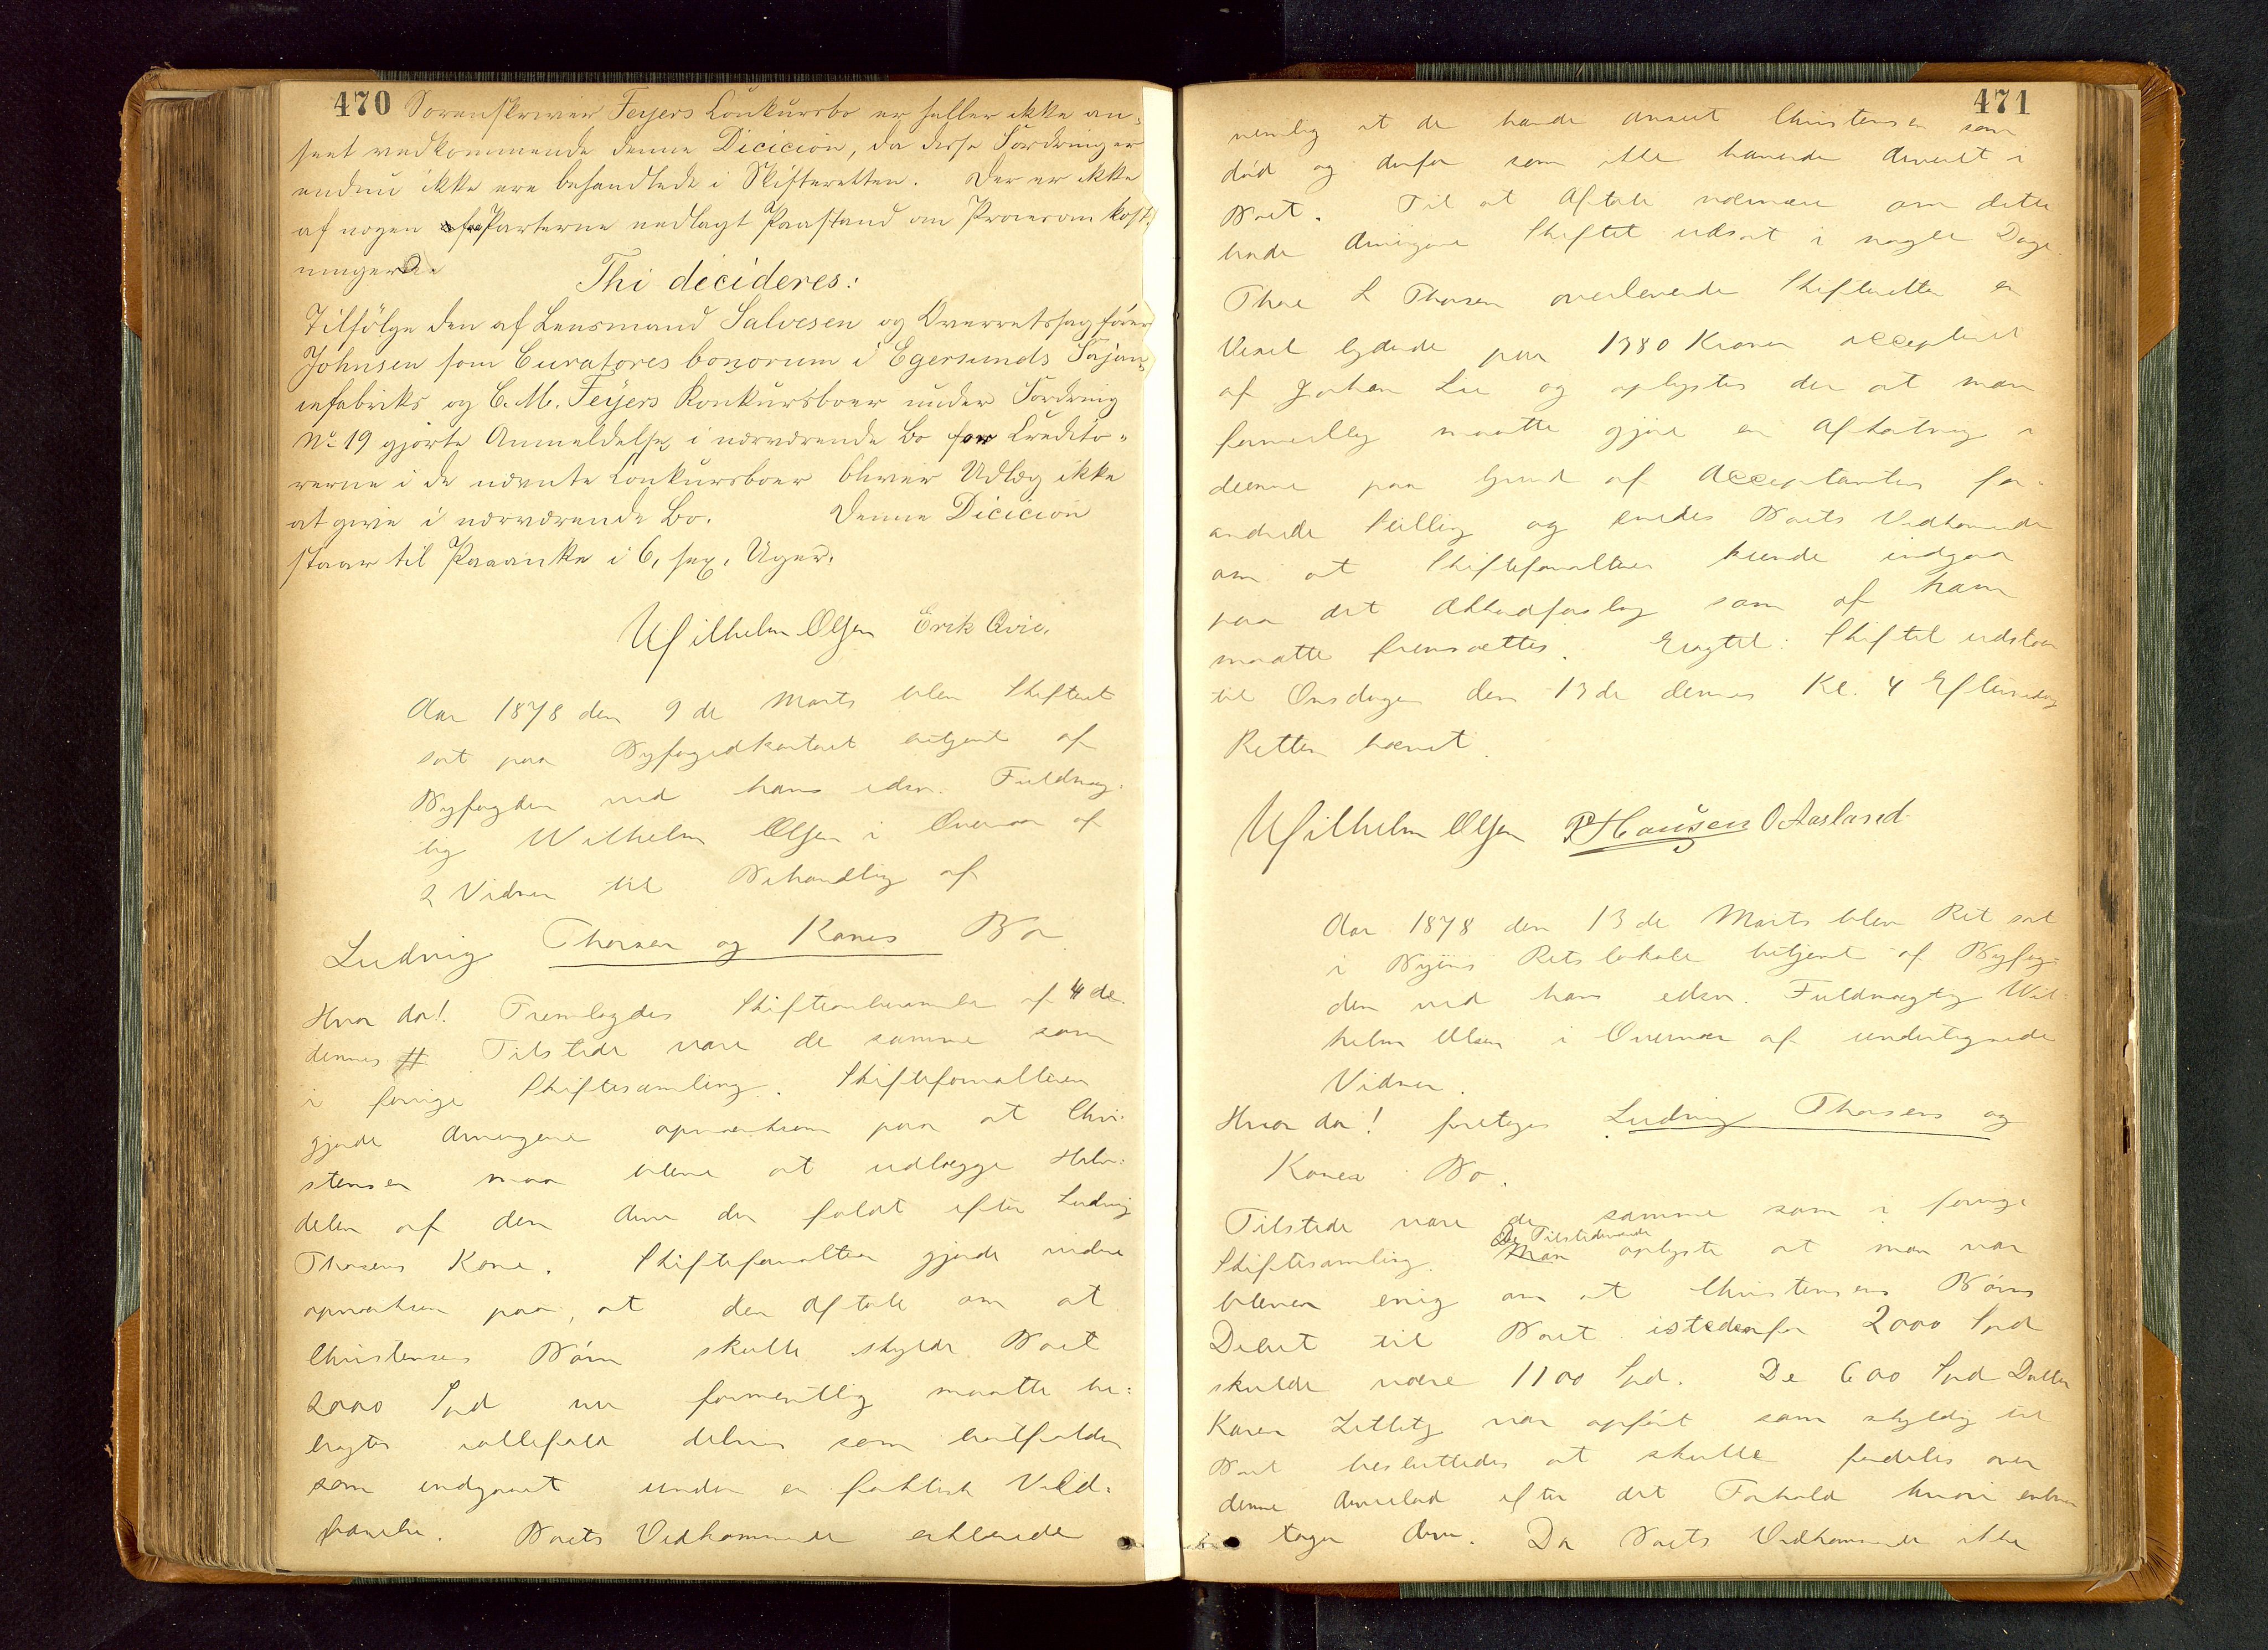 470 Sorenskriver Feyers Konkursbo er heller ikke an-
seet vedkommende denne Dicicion, da disse Fordringer
endnu ikke ere behandlede i Skifteretten. Der er ikke
af nogen af Parterne nedlagt Paastand om Procesomkost-
ninger.
Thi decideres:
Tilfölge den af Lensmand Salvesen og Overretssagförer
Johnsen som Curatores bonorum i Egersunds Fajan-
cefabriks og C. M. Feyers Konkursboer under Fordring
No 19 gjorte Anmeldelse i nærværende Bo for Credito-
rerne i de nævnte Konkursboer bliver Udlæg ikke
at give i nærværende Bo. Denne Dicicion
staar til Paaanke i 6, sex, Uger.
Wilhelm Olsen Erik Qvie.
Aar 1878 den 9de Marts blev Skifteret
sat paa Byfogedkontoret betjent af
Byfogden ved hans edsv. Fuldmæg-
tig Wilhelm Olsen i Overvær af
2 Vidner til Behandling af
Ludvig Thorsen og Kones Bo
Hvor da! Fremlagdes Skifteanberamelse af 4de
dennes # Tilstede vare de samme som
i forrige Skiftesamling. Skifteforvalteren
gjorde Arvingerne opmærksom paa at Chri-
stensen maa blive at udlægge Halv-
delen af den Arv der faldt efter Ludvig
Thorsens Kone. Skifteforvalteren gjorde videre
opmærksom paa, at den Aftale om at
Christensens Börn skulle skylde Boet
2000 Spd nu formentlig maatte be-
tragtes ialfald delvis som bortfalden
som indgaaet under en faktisk Vild-
farelse. Boets Vedkommende erklærede
471
nemlig at de havde anseet Christensen som
död og derfor som ikke havende Arveret i
Boet. Til at Aftale nærmere om dette
havde Arvingerne Skiftet udsat i nogle Dage.
Thore L Thorsen overleverede Skifteretten en
Vexel lydende paa 1380 Kroner accepteret
af Johan Lie og oplystes der at man
formentlig maatte gjöre en Afkortning i
denne paa Grund af Acceptantens for-
andrede Stilling og enedes Boets Vedkommende
om at Skifteforvalteren kunde indgaa
paa det Akkordforslag som af ham
maatte fremsættes. Eragtet: Skiftet udstaar
til Onsdagen den 13de dennes Kl. 4 Eftermiddag
Retten hævet.
Wilhelm Olsen P Hansen O Aasland.
Aar 1878 den 13de Marts blev Ret sat
i Byens Retslokale betjent af Byfog-
den ved hans edsv. Fuldmægtig Wil-
helm Olsen i Overvær af undertegnede
Vidner.
Hvor da! foretoges Ludvig Thorsens og
Kones Bo.
Tilstede vare de samme som i forrige
Skiftesamling. De Tilstedeværende oplyste at man var
bleven enig om at Christensens Börns
Debet til Boet istedenfor 2000 Spd
skulde være 1100 Spd. De 600 Spd Datter
Karen Zetlitz var opfört som skyldig til
Boet besluttedes at skulle fordeles over
denne Arvelod efter det Forhold hvori enhver
tager Arv. Da Boets Vedkommende ikke